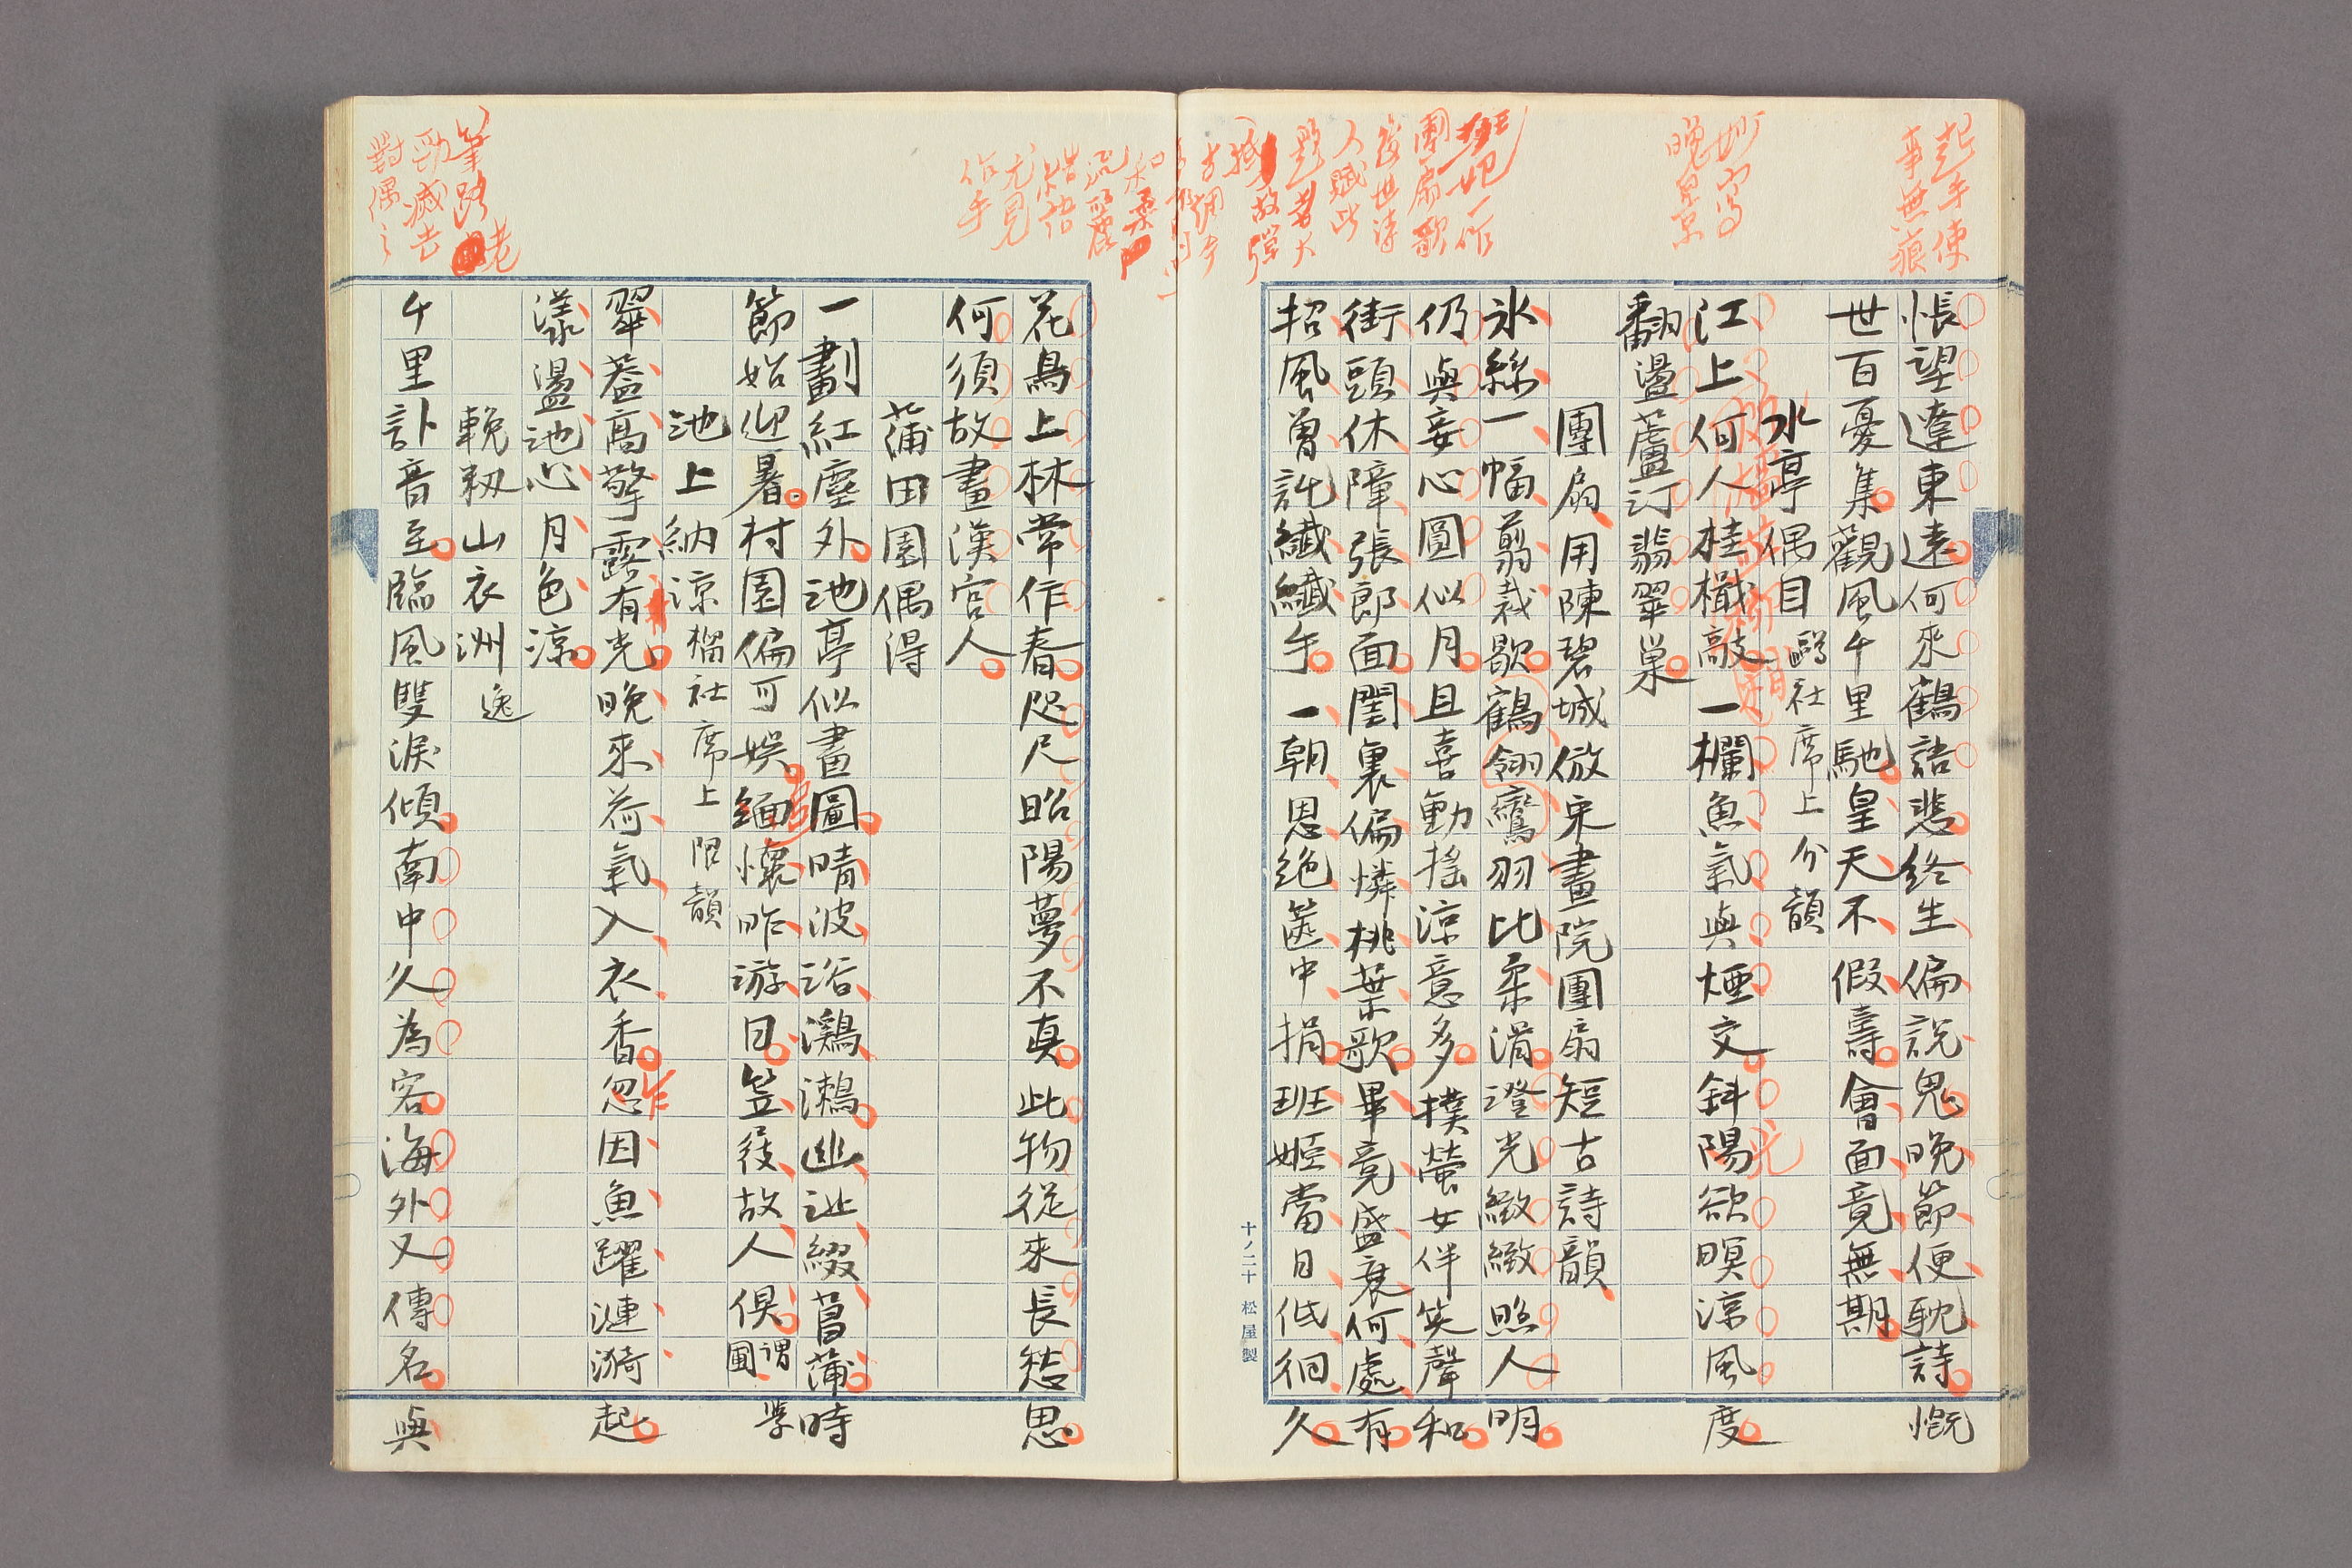 起手使
事無痕
妙寫
晚景
一作
團扇歌
後世詩
人賦此
題者大
故彈
古調今
和柔
流麗
結語
尤見
作手
悵望遼東遠何來鶴語悲終生偏說鬼晚節便耽詩慨
世百憂集觀風千里馳皇天不假壽會面竟無期
水亭偶目 鷗社席上分韻
江上何人桂檝敲一欄魚氣與煙交斜陽欲暝涼風度
翻盪蘆汀翡翠巢
團扇用陳碧城倣宋畫院團扇短古詩韻
氷絲一幅翦裁歇鶴翎鸞羽比柔滑澄光緻緻照人明
仍與妾心圓似月且喜動搖涼意多撲螢女伴笑聲和
街頭休障張郎面閨裏偏憐桃葉歌畢竟盛衰何處有
招風曾託纖纖手一朝恩絕篋中捐班姬當日低徊久
十ノ二十 松屋製
筆路老
勁滅去
對偶之
花鳥上林常作春咫尺昭陽夢不真此物從來長愁思
何須故畫漢宮人
蒲田園偶得
一劃紅塵外池亭似畫圖晴波浴鸂鶒幽沚綴菖蒲時
節始迎暑村園偏可娛緬懷昨游日笠屐故人俱 謂學圃
池上納涼 榴社席上限韻
翠蓋高擎露有光晚來荷氣入衣香忽因魚躍漣漪起
乍
漾盪池心月色涼
輓籾山衣洲逸
千里訃音至臨風雙淚傾南中久為客海外又傳名與